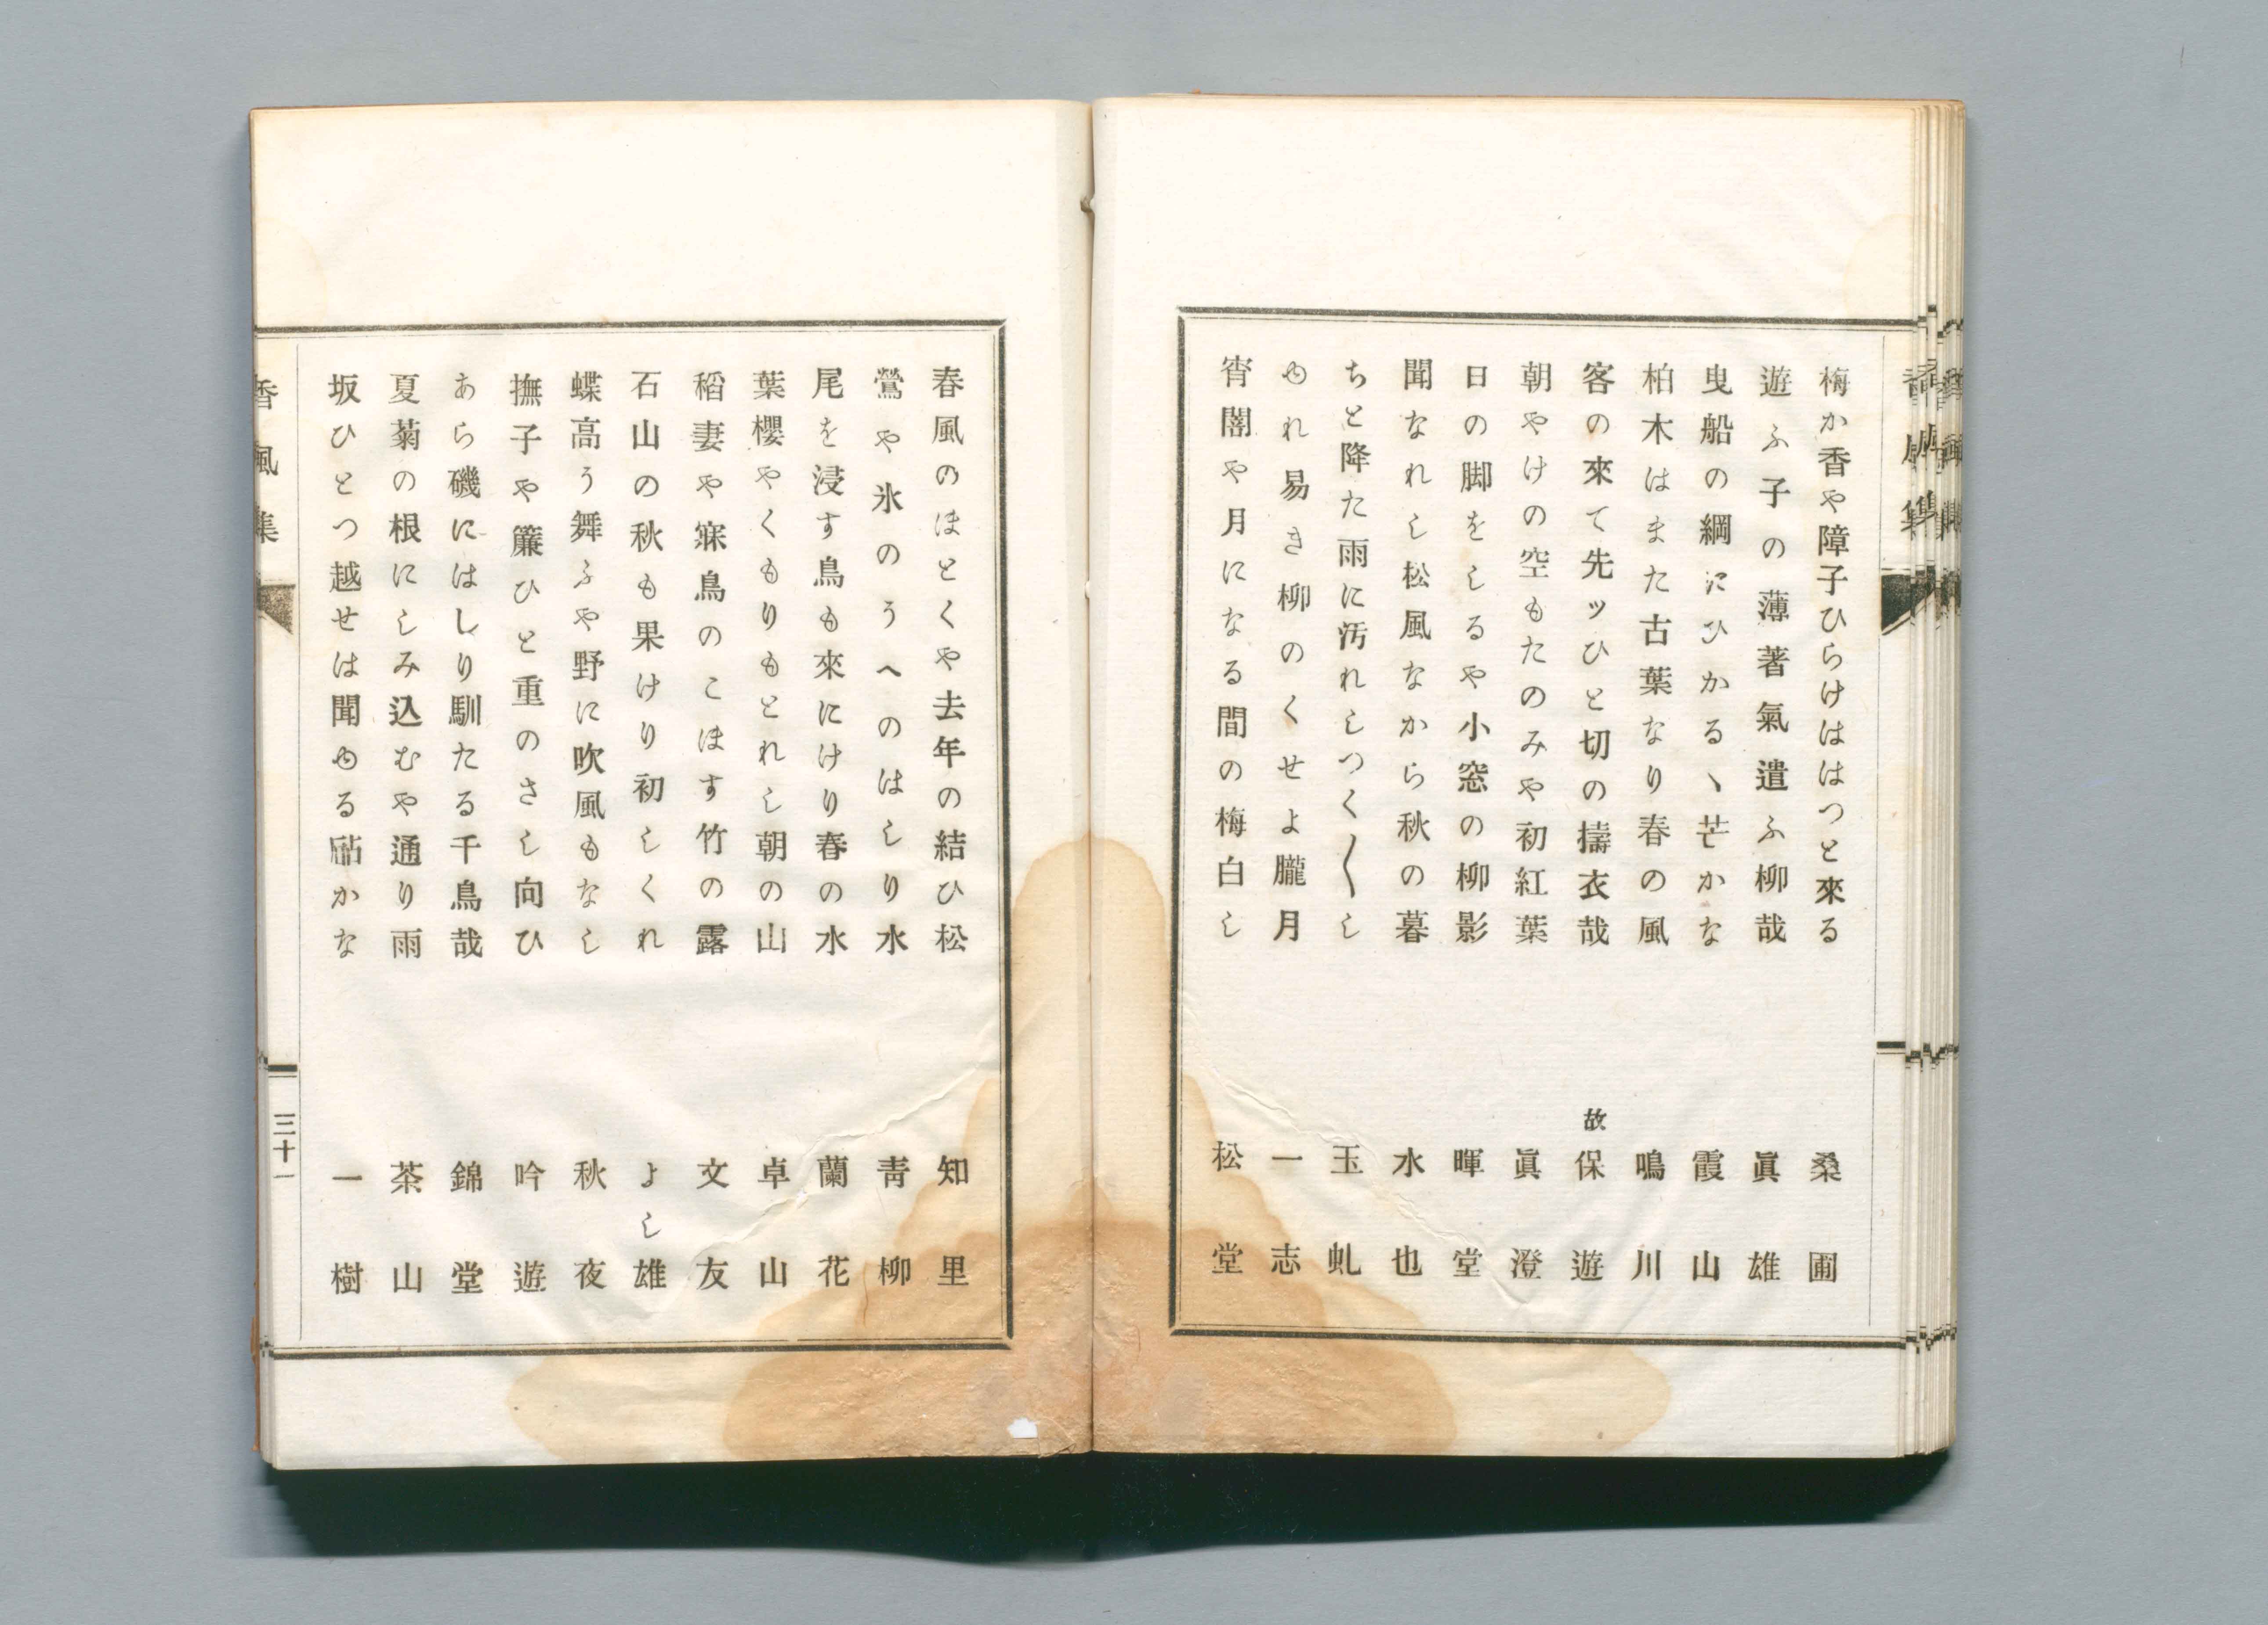 梅か香や障子ひらけははつと來る 桑圃
遊ふ子の薄著氣遣ふ柳哉 眞雄
曳船の綱にひかるヽ芒かな 霞山
柏木はまた古葉なり春の風 鳴川
客の來て先ツひと切の擣衣哉 故保遊
朝やけの空もたのみや初紅葉 眞澄
日の脚をしるや小窓の柳影 暉堂
聞なれし松風なから秋の暮 水也
ちと降た雨に汚れしつく〱し 玉虬
ゆれ易き柳のくせよ朧月 一志
宵闇や月になる間の梅白し 松堂
春風のほとくや去年の結ひ松 知里
鶯や氷のうへのはしり水 靑柳
尾を浸す鳥も來にけり春の水 蘭花
葉櫻やくもりもとれし朝の山 卓山
稻妻や寐鳥のこほす竹の露 文友
石山の秋も果けり初しくれ よし雄
蝶高う舞ふや野に吹風もなし 秋夜
撫子や簾ひと重のさし向ひ 吟遊
あら磯にはしり馴たる千鳥哉 錦堂
夏菊の根にしみ込むや通り雨 茶山
坂ひとつ越せは聞ゆる碪かな 一樹
香風集
三十一